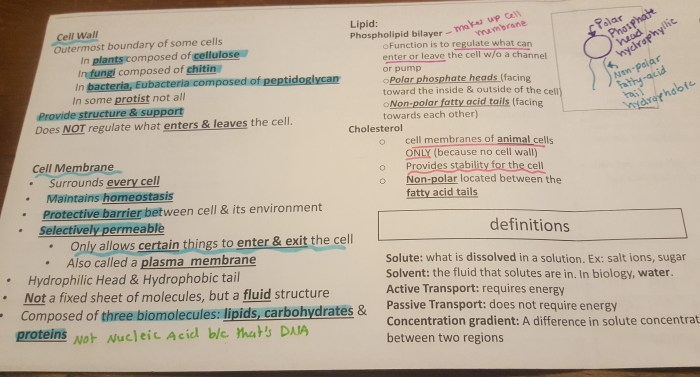 Cell Wall
Outermost boundary of some cells
In plants composed of cellulose
In fungi composed of chitin
In bacteria, Eubacteria composed of peptidoglycan
In some protist not all
Provide structure & support
Does NOT regulate what enters & leaves the cell.
Cell Membrane
• Surrounds every cell
• Maintains homeostasis
• Protective barrier between cell & its environment
• Selectively permeable
• Only allows certain things to enter & exit the cell
• Also called a plasma membrane
• Hydrophilic Head & Hydrophobic tail
• Not a fixed sheet of molecules, but a fluid structure
• Composed of three biomolecules: lipids, carbohydrates &
proteins Not Nucleic Acid b/c that's DNA
Lipid:
Phospholipid bilayer – makes up cell
membrane
○Function is to regulate what can
enter or leave the cell w/o a channel
or pump
○Polar phosphate heads (facing
toward the inside & outside of the cell)
○Non-polar fatty acid tails (facing
towards each other)
Cholesterol
○ cell membranes of animal cells
ONLY (because no cell wall)
○ Provides stability for the cell
○ Non-polar located between the
fatty acid tails
Polar
Phosphate
head
hydrophylic
Non-polar
fatty-acid
tail
hydrophobic
definitions
Solute: what is dissolved in a solution. Ex: salt ions, sugar
Solvent: the fluid that solutes are in. In biology, water.
Active Transport: requires energy
Passive Transport: does not require energy
Concentration gradient: A difference in solute concentrat
between two regions